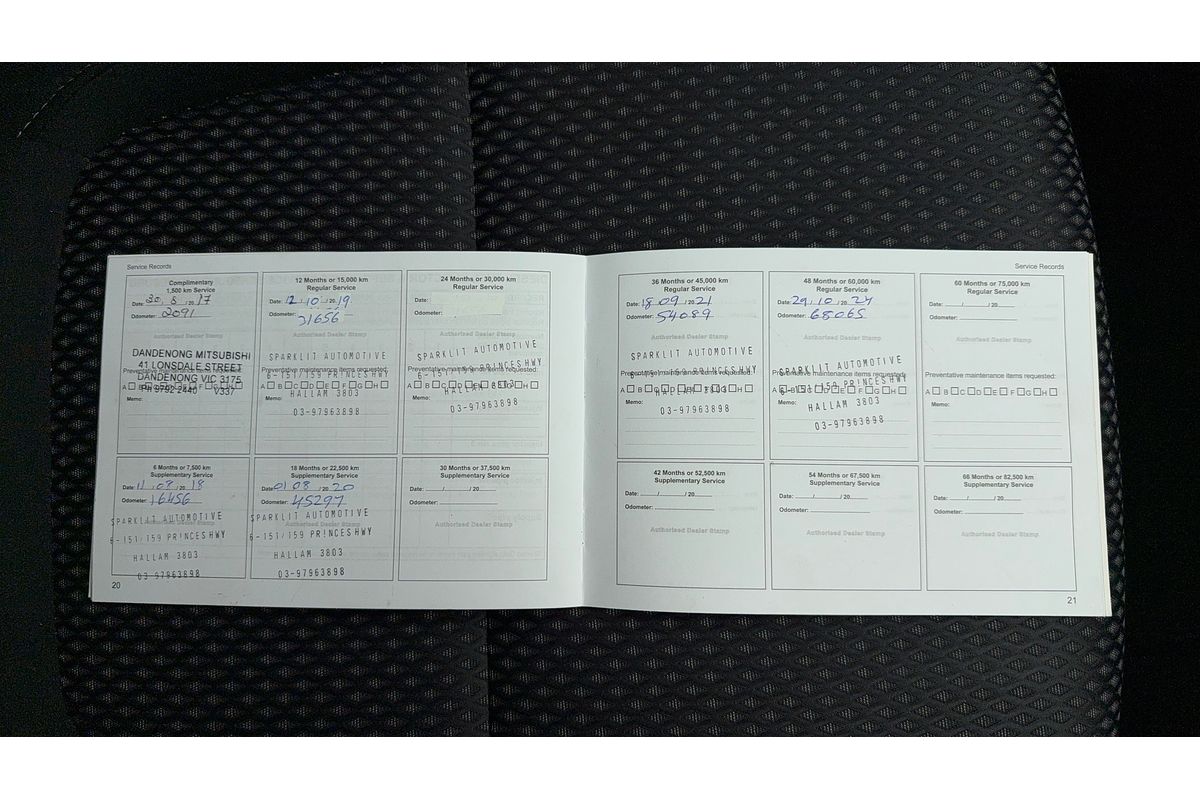 Service Records
Complimentary
1,500 km Service
Date: 30 / 8 / 20 17
Odometer: 2091
Authorised Dealer Stamp
DANDENONG MITSUBISHI
41 LONSDALE STREET
Preventative maintenance items requested:
DANDENONG VIC 3175
PH 9792 2440 V337
Memo:
12 Months or 15,000 km
Regular Service
Date: 12 / 10 / 20 19
Odometer: 31656
Authorised Dealer Stamp
SPARKLIT AUTOMOTIVE
Preventative maintenance items requested:
6-151/159 PRINCES HWY
A B C D E F G H
Memo:
HALLAM 3803
03-97963898
24 Months or 30,000 km
Regular Service
Date:
Odometer:
Authorised Dealer Stamp
SPARKLIT AUTOMOTIVE
Preventative maintenance items requested:
PRINCES HWY
A B C D E F G H
Memo:
HALLAM 3803
03-97963898
6 Months or 7,500 km
Supplementary Service
Date: 11 / 08 / 20 18
Odometer: 16456
Authorised Dealer Stamp
SPARKLIT AUTOMOTIVE
6-151/159 PRINCES HWY
HALLAM 3803
03-97963898
18 Months or 22,500 km
Supplementary Service
Date: 01 08 / 20 20
Odometer: 45297
Authorised Dealer Stamp
SPARKLIT AUTOMOTIVE
6-151/159 PRINCES HWY
HALLAM 3803
03-97963898
30 Months or 37,500 km
Supplementary Service
Date: / / 20
Odometer:
Authorised Dealer Stamp
20
Service Records
36 Months or 45,000 km
Regular Service
Date: 18 / 09 / 20 21
Odometer: 54089
Authorised Dealer Stamp
SPARKLIT AUTOMOTIVE
Preventative maintenance items requested:
PRINCES HWY
A B C D E F G H
Memo:
HALLAM 3803
03-97963898
48 Months or 60,000 km
Regular Service
Date: 29 / 10 / 20 24
Odometer: 68065
Authorised Dealer Stamp
SPARKLIT AUTOMOTIVE
Preventative maintenance items requested:
6-151/159 PRINCES HWY
A B C D E F G H
Memo:
HALLAM 3803
03-97963898
60 Months or 75,000 km
Regular Service
Date: / / 20
Odometer:
Authorised Dealer Stamp
Preventative maintenance items requested:
A B C D E F G H
Memo:
42 Months or 52,500 km
Supplementary Service
Date: / / 20
Odometer:
Authorised Dealer Stamp
54 Months or 67,500 km
Supplementary Service
Date: / / 20
Odometer:
Authorised Dealer Stamp
66 Months or 82,500 km
Supplementary Service
Date: / / 20
Odometer:
Authorised Dealer Stamp
21